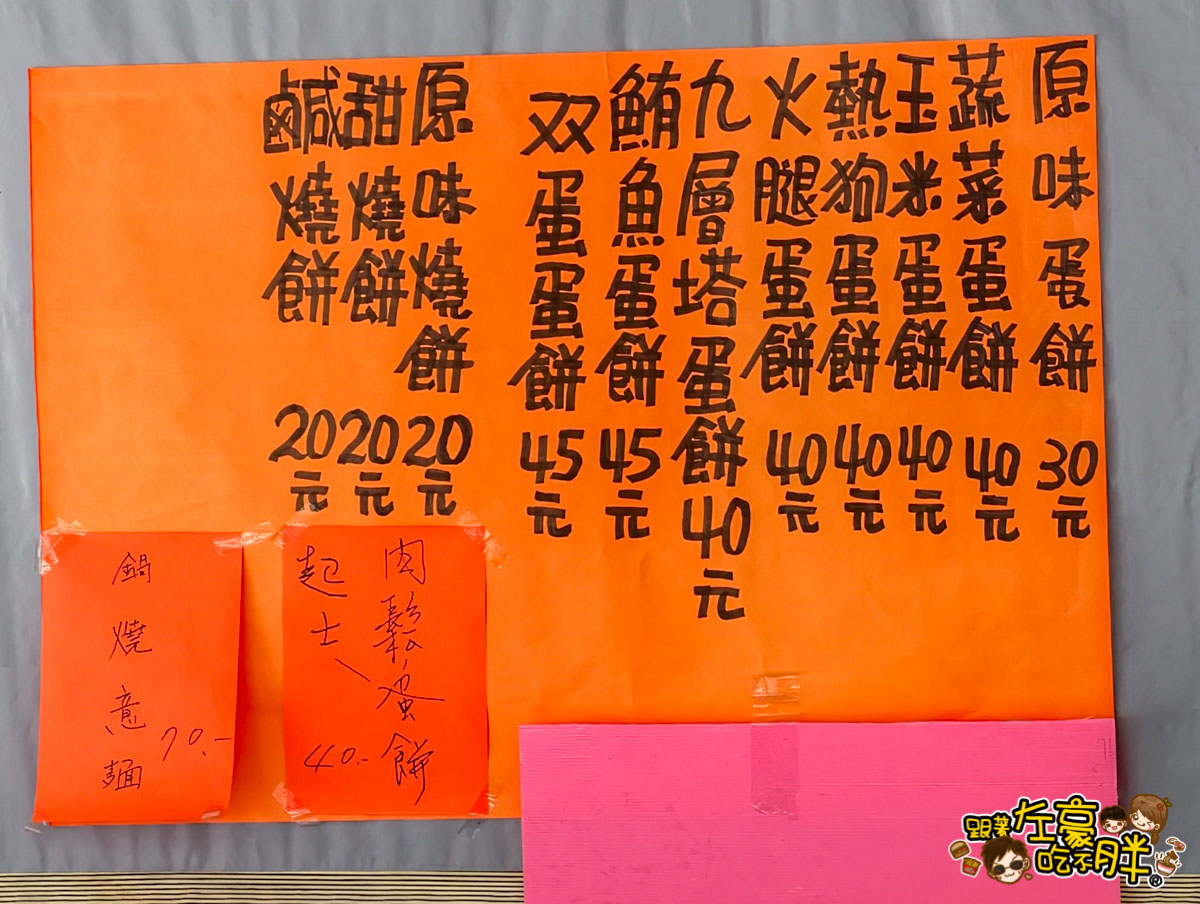 原味蛋餅30元
蔬菜蛋餅40元
玉米蛋餅40元
熱狗蛋餅40元
火腿蛋餅40元
九層塔蛋餅40元
鮪魚蛋餅45元
双蛋蛋餅45元
原味燒餅20元
甜燒餅20元
鹹燒餅20元
肉鬆、蛋餅
起士、
40.-
鍋燒意麵
70.-
跟著左豪吃不胖®